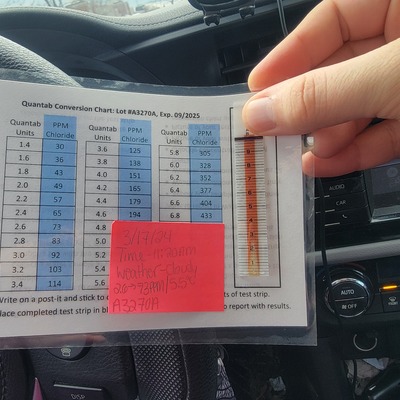 Quantab Conversion Chart: Lot #A3270A, Exp. 09/2025
Quantab Units PPM Chloride Quantab Units PPM Chloride Quantab Units PPM Chloride
1.4 30 3.6 125 5.8 305
1.6 36 3.8 138 6.0 328
1.8 43 4.0 151 6.2 352
2.0 49 4.2 165 6.4 377
2.2 57 4.4 179 6.6 404
2.4 65 4.6 194 6.8 433
2.6 73 4.8
2.8 83 5.0
3.0 92 5.2
3.2 103 5.4
3.4 114 5.6
3/17/24
Time-11:20am
Weather-Cloudy
A3270A
Write on a post-it and stick to ts of test strip.
lace completed test strip in bl o report with results.
AUDIO
CAR
AUTO
ON/OFF
DISP